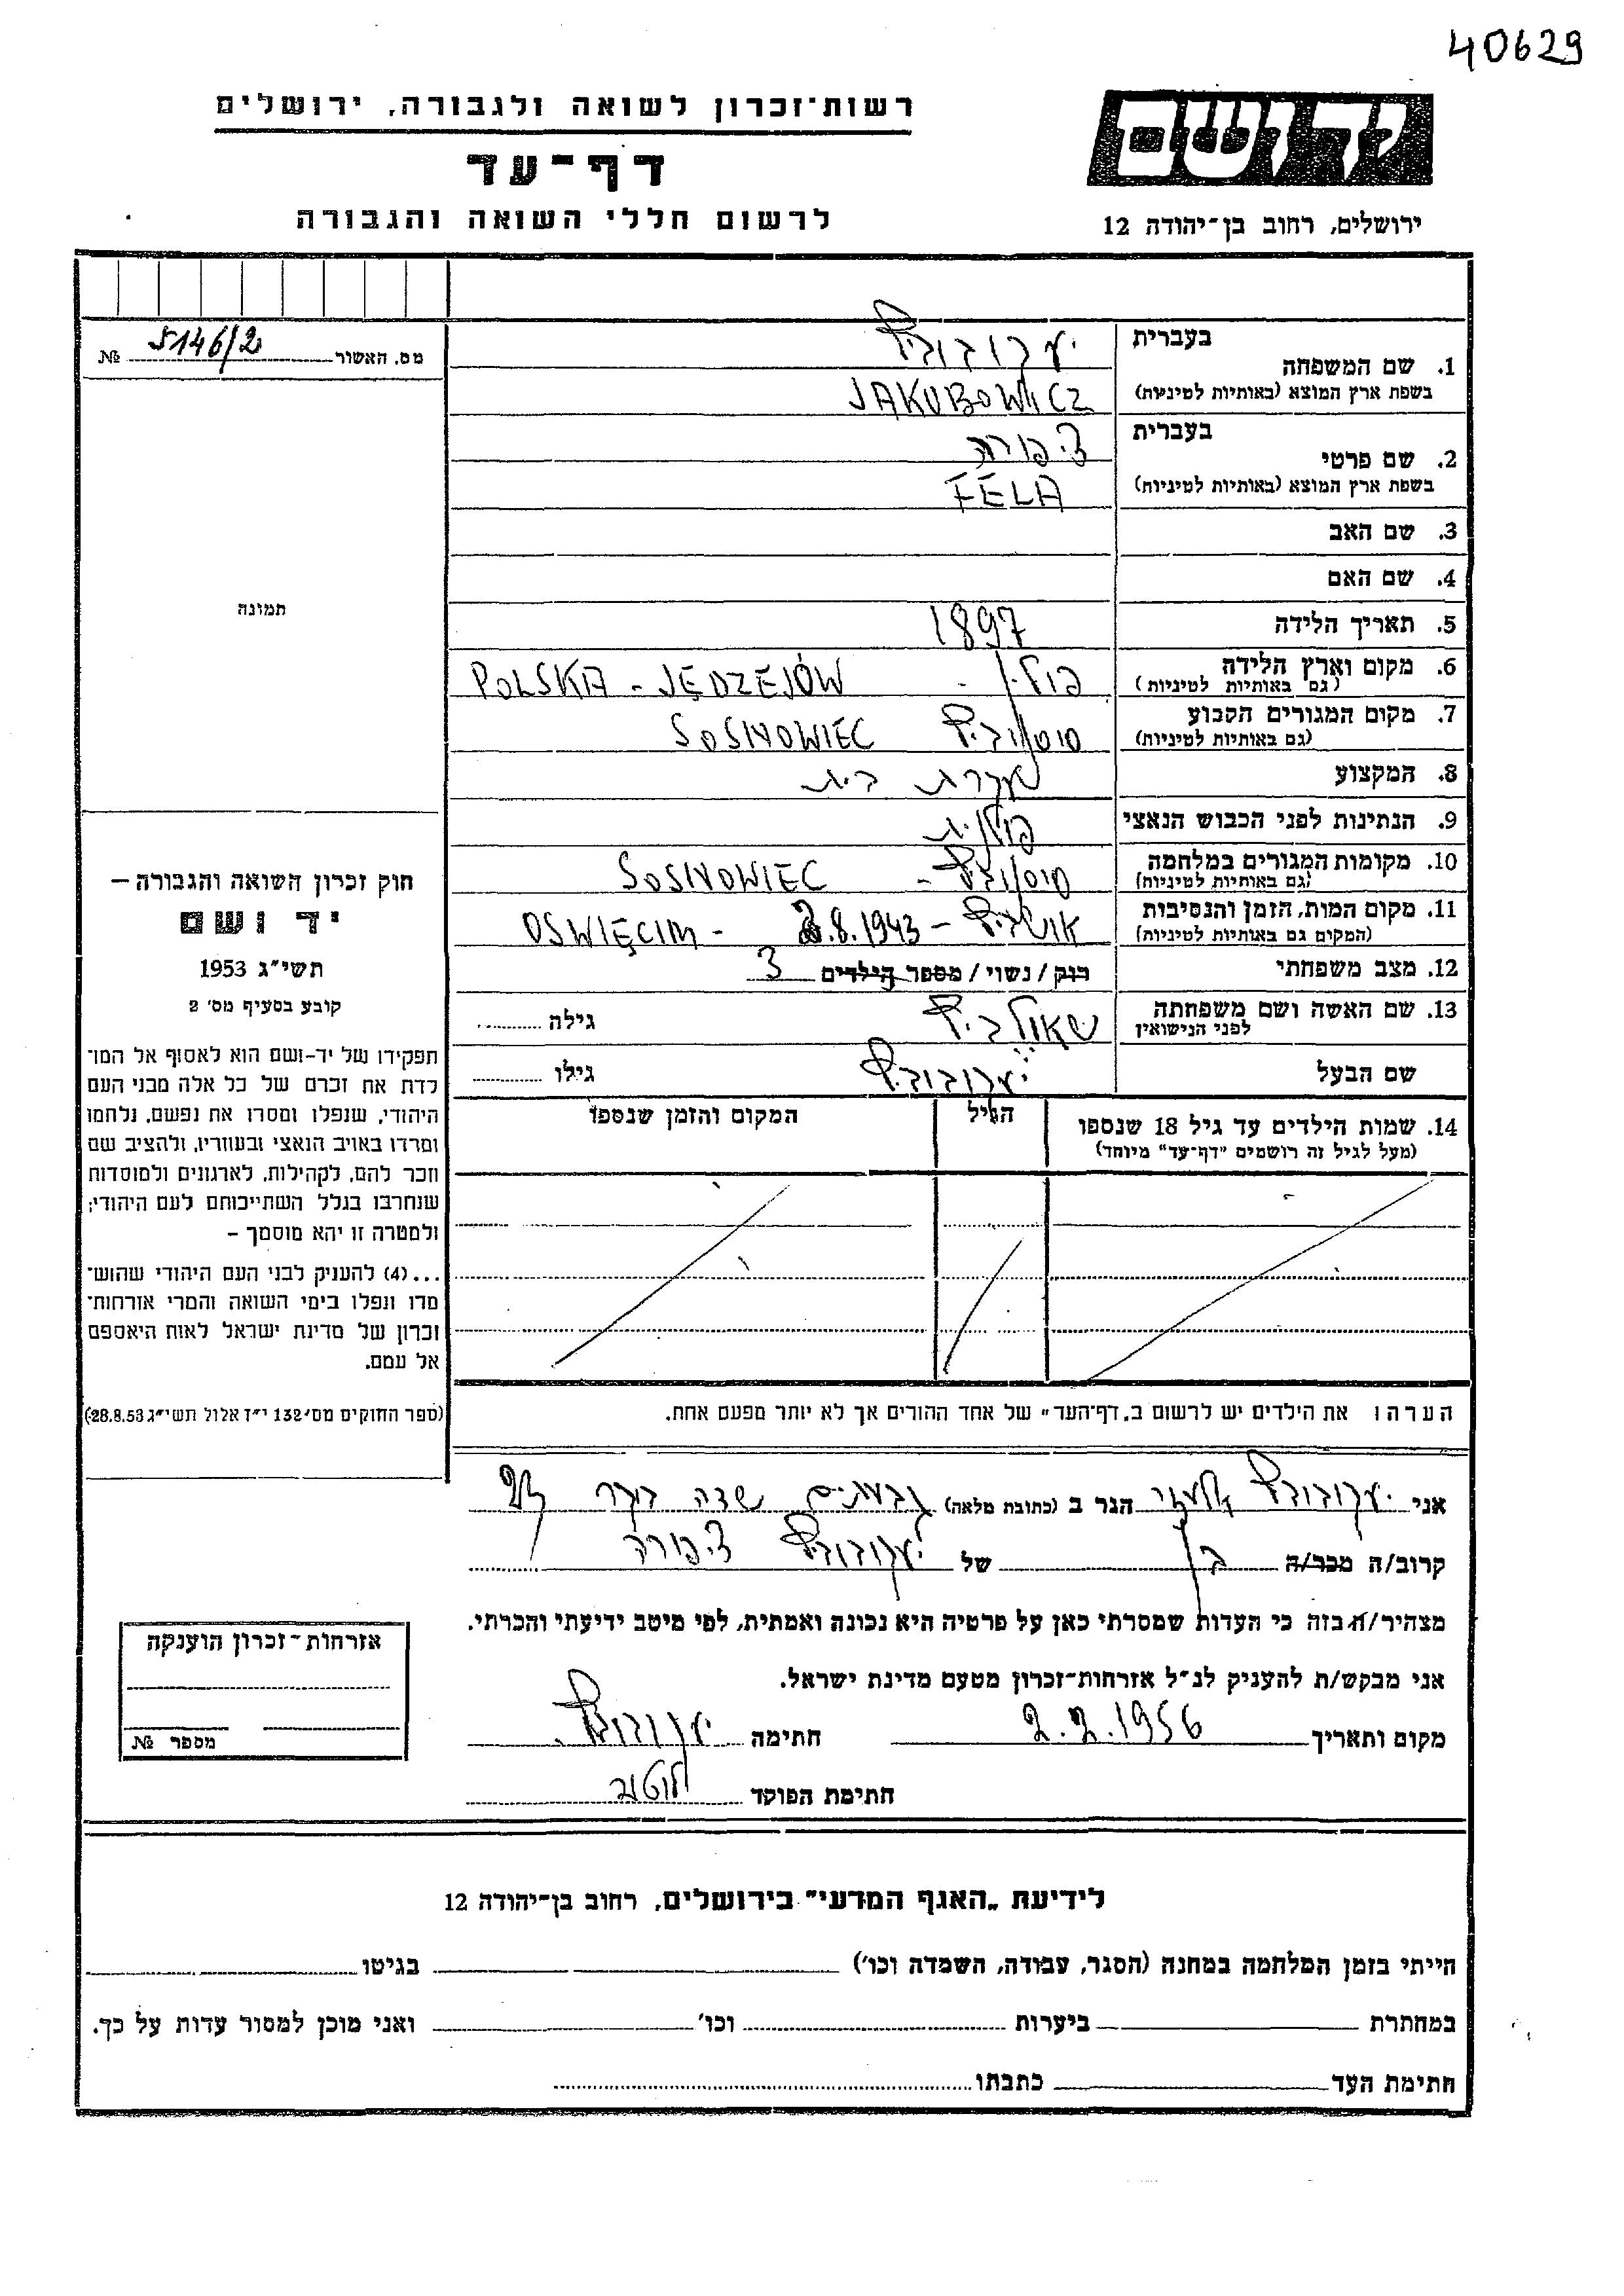 40629
רשות־זכרון לשואה ולגבורה, ירושלים
דף־עד
לרשום חללי השואה והגבורה
יד ושם
ירושלים, רחוב בן־יהודה 12
מס. האשור 5146/2 №
תמונה
חוק זכרון השואה והגבורה —
יד ושם
תשי״ג 1953
קובע בסעיף מס׳ 2
תפקידו של יד-ושם הוא לאסוף אל המו־
לדת את זכרם של כל אלה מבני העם
היהודי, שנפלו ומסרו את נפשם, נלחמו
ומרדו באויב הנאצי ובעוזריו, ולהציב שם
וזכר להם, לקהילות, לארגונים ולמוסדות
שנחרבו בגלל השתייכותם לעם היהודי;
ולמטרה זו יהא מוסמך —
...(4) להעניק לבני העם היהודי שהוש־
מדו ונפלו בימי השואה והמרי אזרחות־
זכרון של מדינת ישראל לאות היאספם
אל עמם.
(ספר החוקים מס׳ 132 י״ז אלול תשי״ג 28.8.53)
בעברית יעקובוביץ
1. שם המשפחה
בשפת ארץ המוצא (באותיות לטיניות) JAKUBOWICZ
בעברית ציפורה
2. שם פרטי
בשפת ארץ המוצא (באותיות לטיניות) FELA
3. שם האב
4. שם האם
5. תאריך הלידה 1897
6. מקום וארץ הלידה פולין - POLSKA - JĘDZEJÓW
(גם באותיות לטיניות)
7. מקום המגורים הקבוע סוסנוביץ SOSNOWIEC
(גם באותיות לטיניות)
8. המקצוע עקרת בית
9. הנתינות לפני הכבוש הנאצי פולנית
10. מקומות המגורים במלחמה סוסנוביץ - SOSNOWIEC
(גם באותיות לטיניות)
11. מקום המות, הזמן והנסיבות אושביץ - 8.1943 - OSWIĘCIM
(המקום גם באותיות לטיניות)
12. מצב משפחתי רווק / נשוי / מספר הילדים 3
13. שם האשה ושם משפחתה שאולביץ גילה
לפני הנישואין
שם הבעל יעקובוביץ גילו
14. שמות הילדים עד גיל 18 שנספו הגיל המקום והזמן שנספו
(מעל לגיל זה רושמים ״דף-עד״ מיוחד)
הערה: את הילדים יש לרשום ב„דף־העד״ של אחד ההורים אך לא יותר מפעם אחת.
אני יעקובוביץ אלעזר הגר ב (כתובת מלאה) גבעתיים שדה בוקר
קרוב/ה מכר/ה בן של יעקובוביץ ציפורה
מצהיר/ה בזה כי העדות שמסרתי כאן על פרטיה היא נכונה ואמתית, לפי מיטב ידיעתי והכרתי.
אני מבקש/ת להעניק לנ״ל אזרחות-זכרון מטעם מדינת ישראל.
מקום ותאריך 2.2.1956 חתימה יעקובוביץ
חתימת הפוקד
אזרחות־זכרון הוענקה
מספר №
לידיעת „האגף המדעי״ בירושלים, רחוב בן־יהודה 12
הייתי בזמן המלחמה במחנה (הסגר, עבודה, השמדה וכו׳) בגיטו
במחתרת ביערות וכו׳ ואני מוכן למסור עדות על כך.
חתימת העד כתבתו